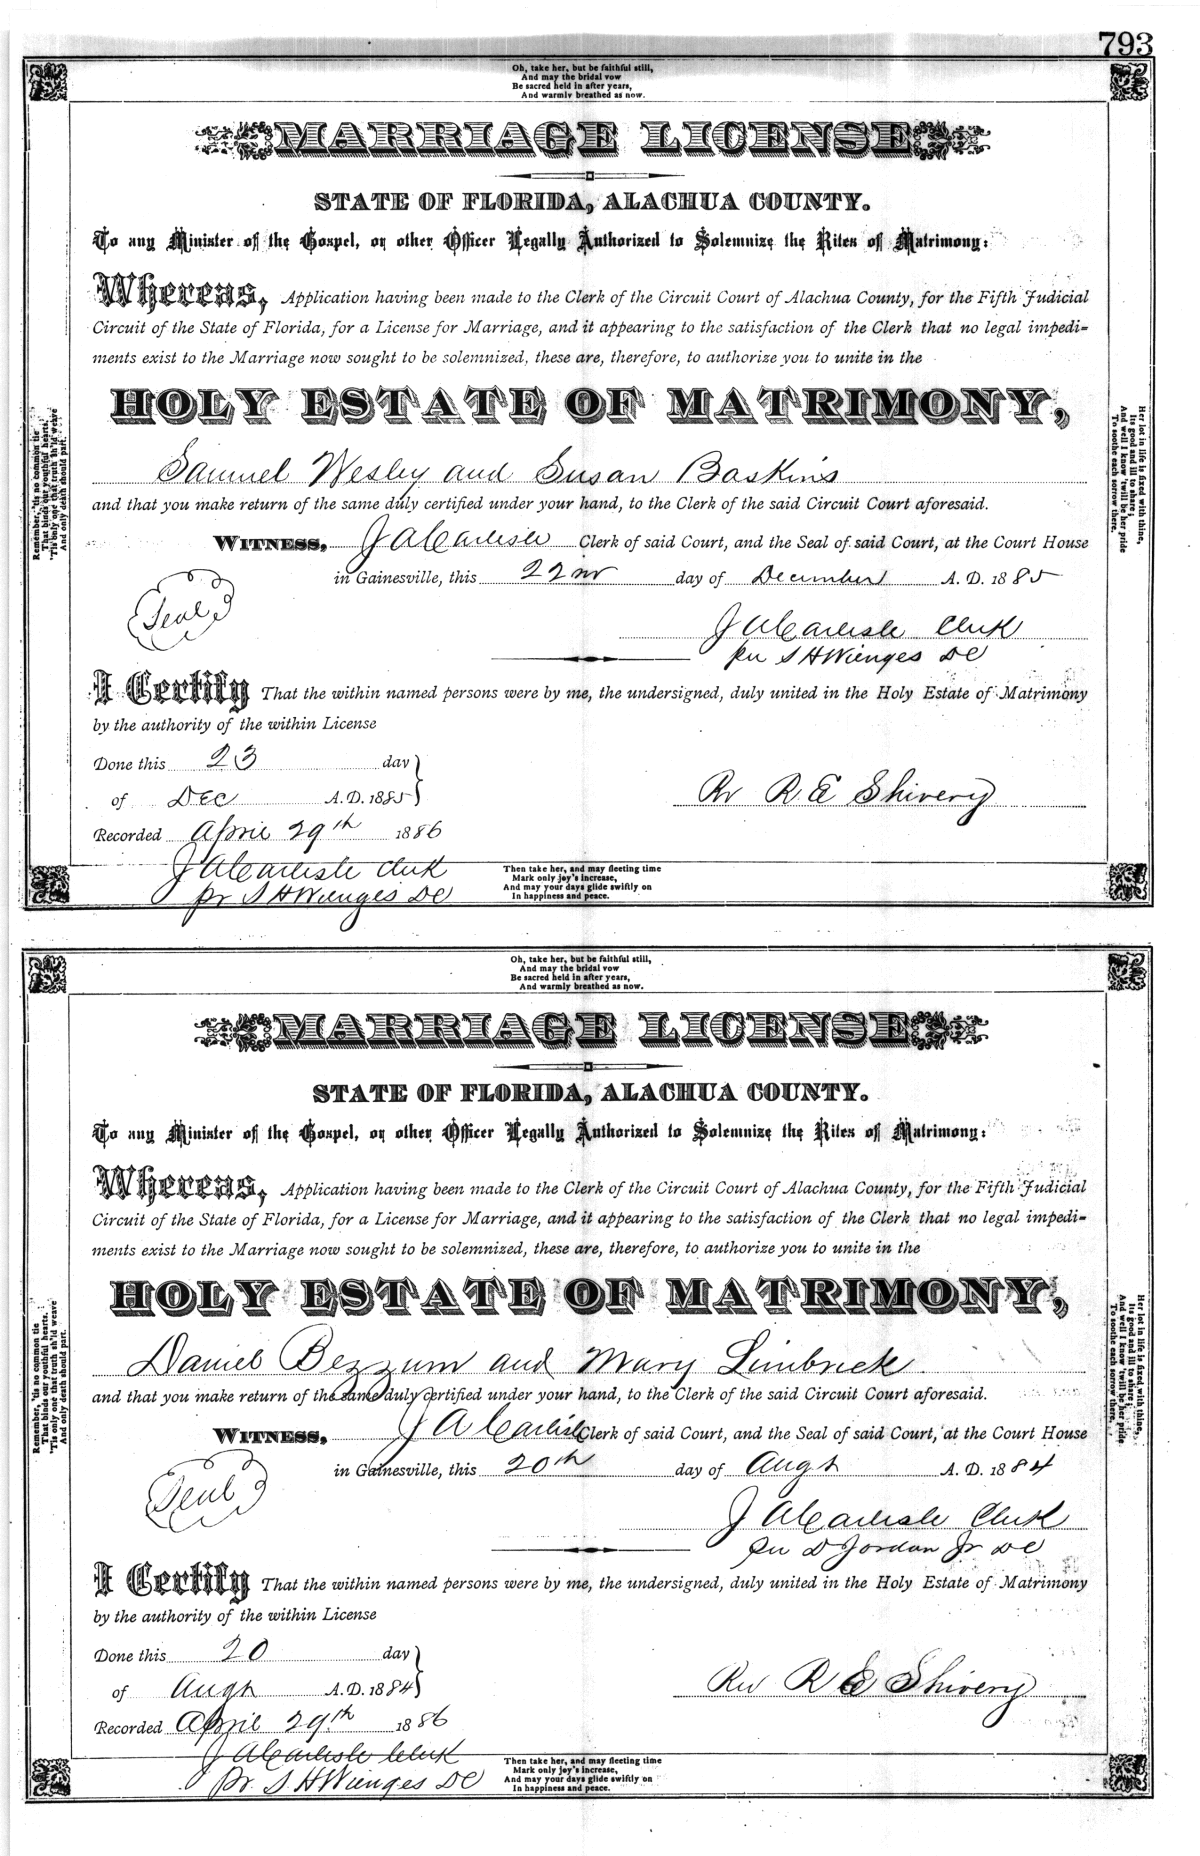 793
Oh, take her, but be faithful still,
And may the bridal vow
Be sacred held in after years,
And warmly breathed as now.
MARRIAGE LICENSE
STATE OF FLORIDA, ALACHUA COUNTY.
To any Minister of the Gospel, or other Officer Legally Authorized to Solemnize the Rites of Matrimony:
Whereas, Application having been made to the Clerk of the Circuit Court of Alachua County, for the Fifth Judicial
Circuit of the State of Florida, for a License for Marriage, and it appearing to the satisfaction of the Clerk that no legal impedi-
ments exist to the Marriage now sought to be solemnized, these are, therefore, to authorize you to unite in the
HOLY ESTATE OF MATRIMONY,
Samuel Wesley and Susan Baskins
and that you make return of the same duly certified under your hand, to the Clerk of the said Circuit Court aforesaid.
WITNESS, J A Carlisle Clerk of said Court, and the Seal of said Court, at the Court House
in Gainesville, this 22nd day of December A. D. 1885
Seal
J A Carlisle Clerk
per S H Wienges DC
I Certify That the within named persons were by me, the undersigned, duly united in the Holy Estate of Matrimony
by the authority of the within License
Done this 23 day
of Dec A. D. 1885
Rev R E Shivery
Recorded April 29th 1886
J A Carlisle Clerk
pr S H Wienges DC
Then take her, and may fleeting time
Mark only joy's increase,
And may your days glide swiftly on
In happiness and peace.
Remember, 'tis no common tie
That binds our youthful hearts,
'Tis only one that truth sh'ld weave
And only death should part.
Her lot in life is fixed with thine,
Its good and ill to share;
And well I know 'twill be her pride
To soothe each sorrow there.
Oh, take her, but be faithful still,
And may the bridal vow
Be sacred held in after years,
And warmly breathed as now.
MARRIAGE LICENSE
STATE OF FLORIDA, ALACHUA COUNTY.
To any Minister of the Gospel, or other Officer Legally Authorized to Solemnize the Rites of Matrimony:
Whereas, Application having been made to the Clerk of the Circuit Court of Alachua County, for the Fifth Judicial
Circuit of the State of Florida, for a License for Marriage, and it appearing to the satisfaction of the Clerk that no legal impedi-
ments exist to the Marriage now sought to be solemnized, these are, therefore, to authorize you to unite in the
HOLY ESTATE OF MATRIMONY,
Daniel Bezzum and Mary Limbrick
and that you make return of the same duly certified under your hand, to the Clerk of the said Circuit Court aforesaid.
WITNESS, J A Carlisle Clerk of said Court, and the Seal of said Court, at the Court House
in Gainesville, this 20th day of Augt A. D. 1884
Seal
J A Carlisle Clerk
per D Jordan Jr DC
I Certify That the within named persons were by me, the undersigned, duly united in the Holy Estate of Matrimony
by the authority of the within License
Done this 20 day
of Augt A. D. 1884
Rev R E Shivery
Recorded April 29th 1886
J A Carlisle Clerk
pr. S H Wienges DC
Then take her, and may fleeting time
Mark only joy's increase,
And may your days glide swiftly on
In happiness and peace.
Remember, 'tis no common tie
That binds our youthful hearts.
'Tis only one that truth sh'ld weave
And only death should part.
Her lot in life is fixed with thine,
Its good and ill to share;
And well I know 'twill be her pride
To soothe each sorrow there.